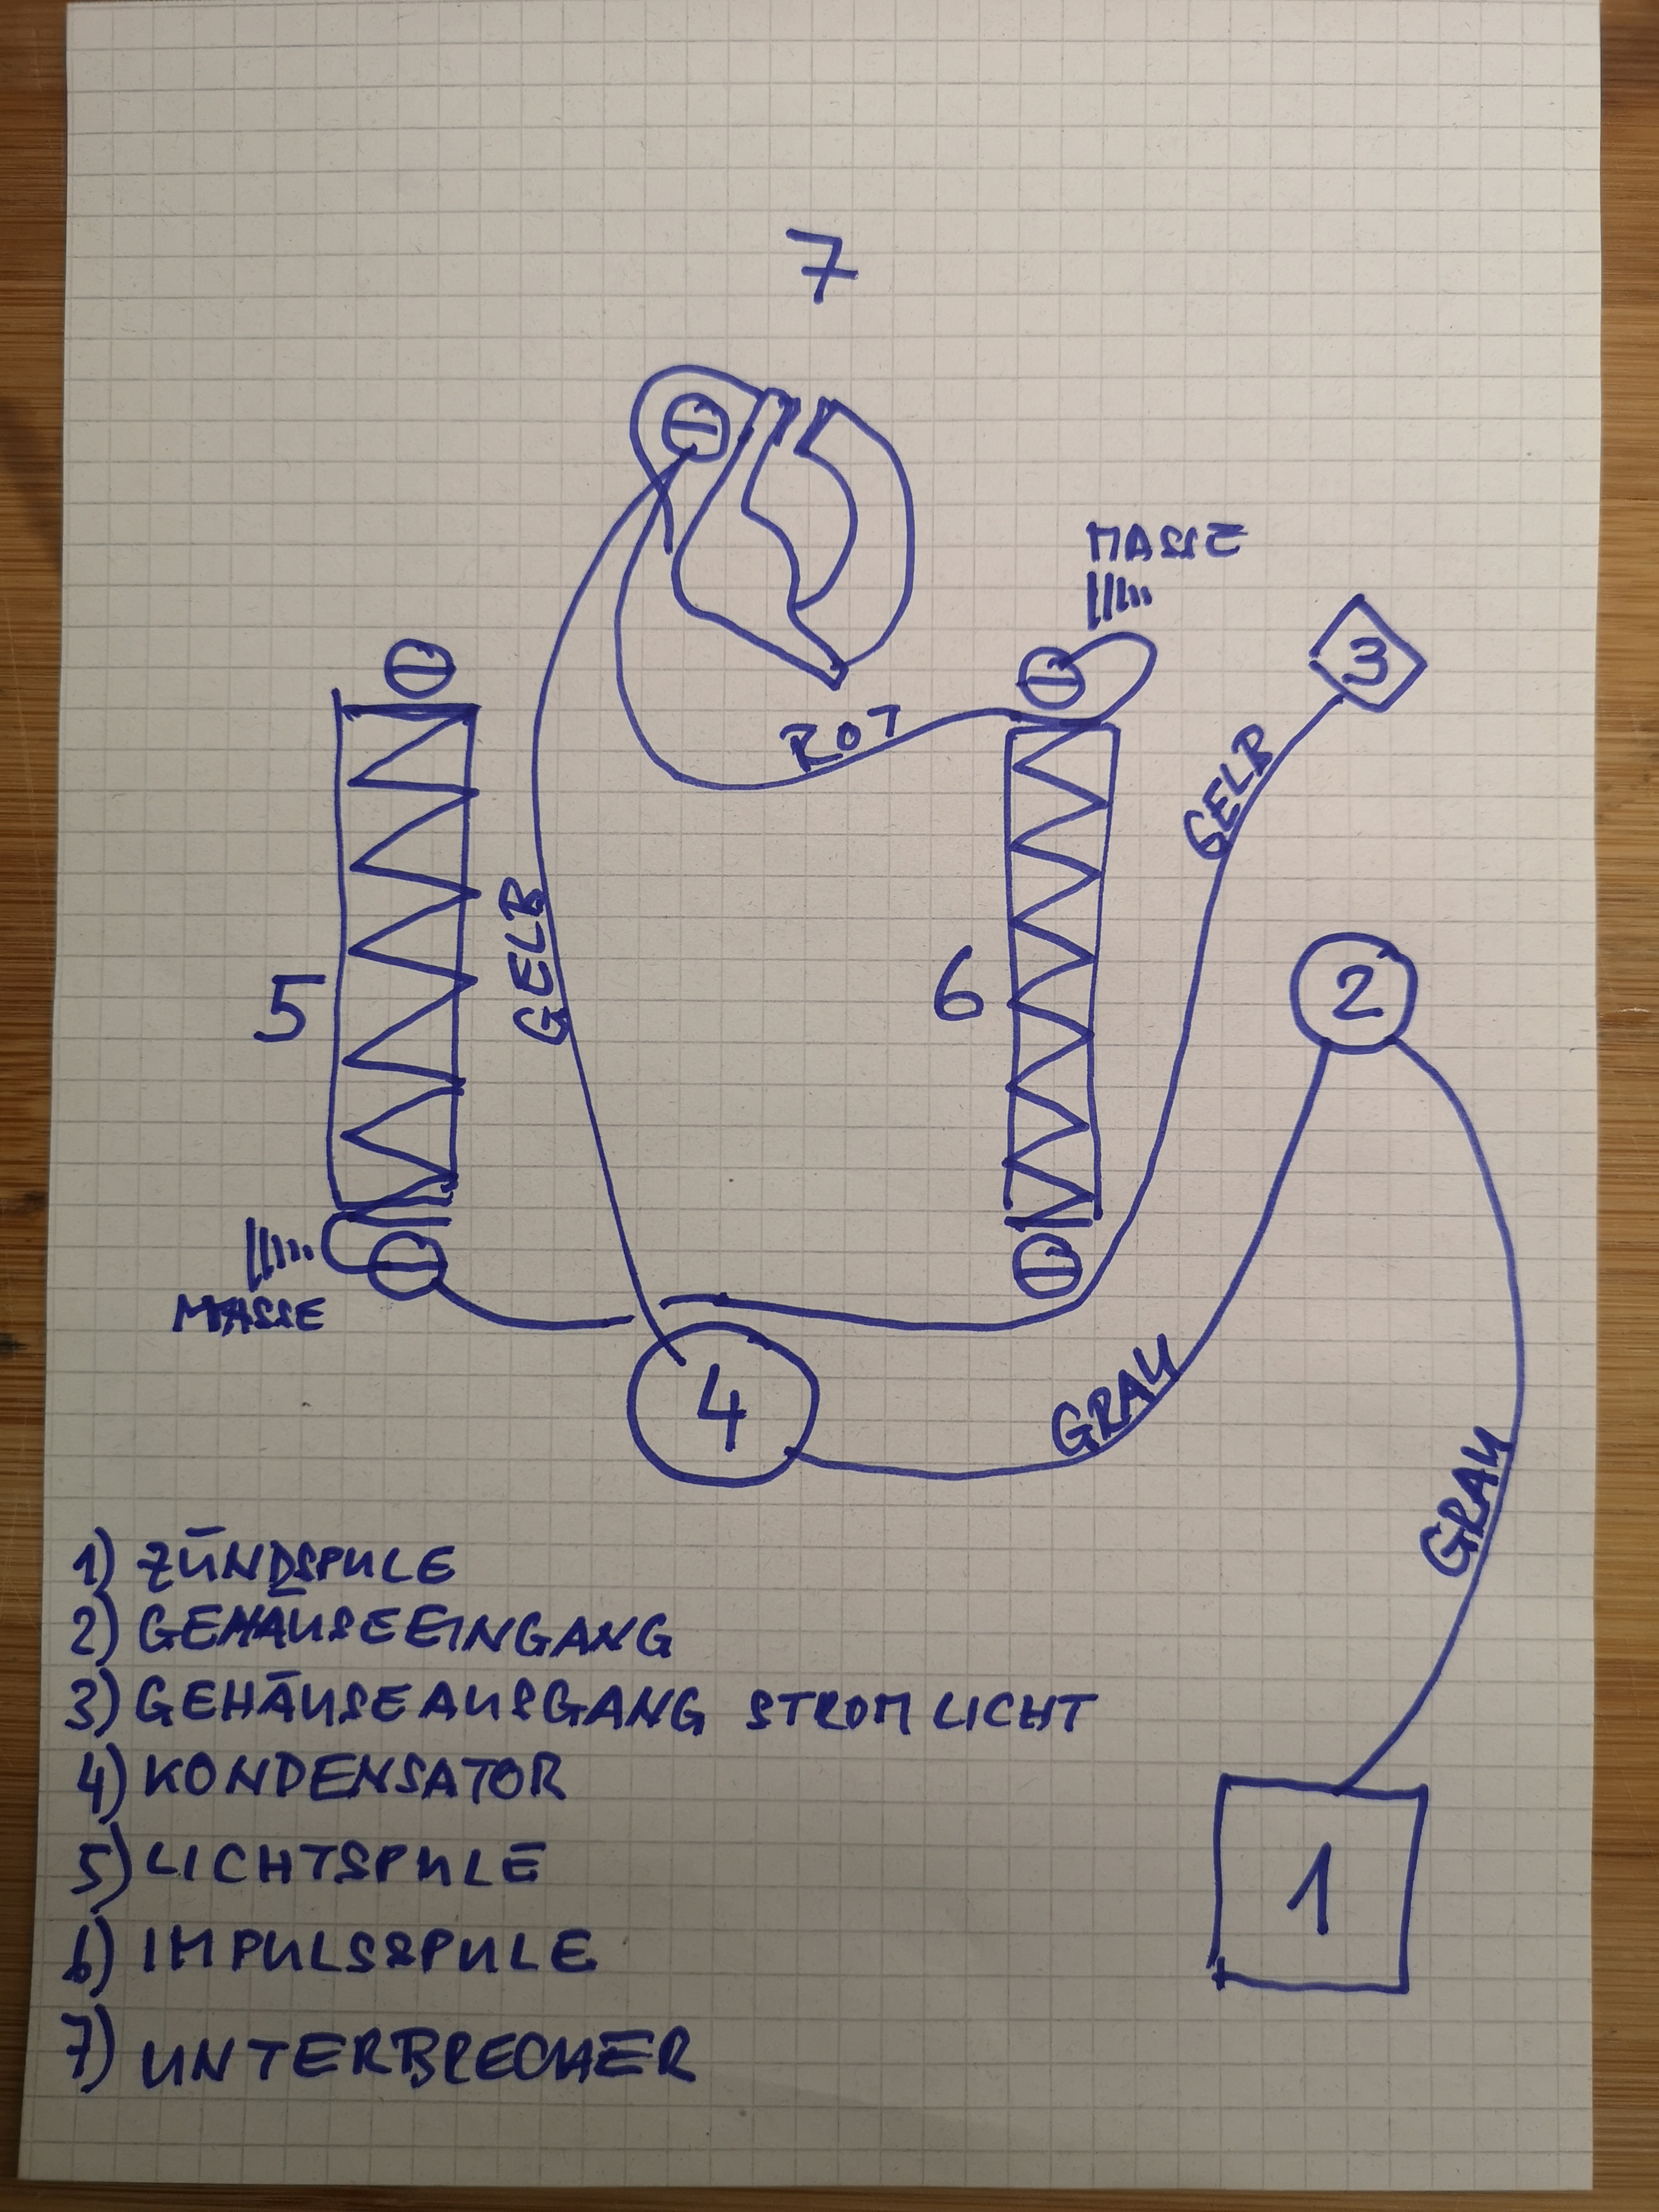 7
MASSE
3
ROT
GELB
GELB
5
6
2
MASSE
4
GRAU
GRAU
1
1) ZÜNDSPULE
2) GEHÄUSEEINGANG
3) GEHÄUSEAUSGANG STROM LICHT
4) KONDENSATOR
5) LICHTSPULE
6) IMPULSSPULE
7) UNTERBRECHER